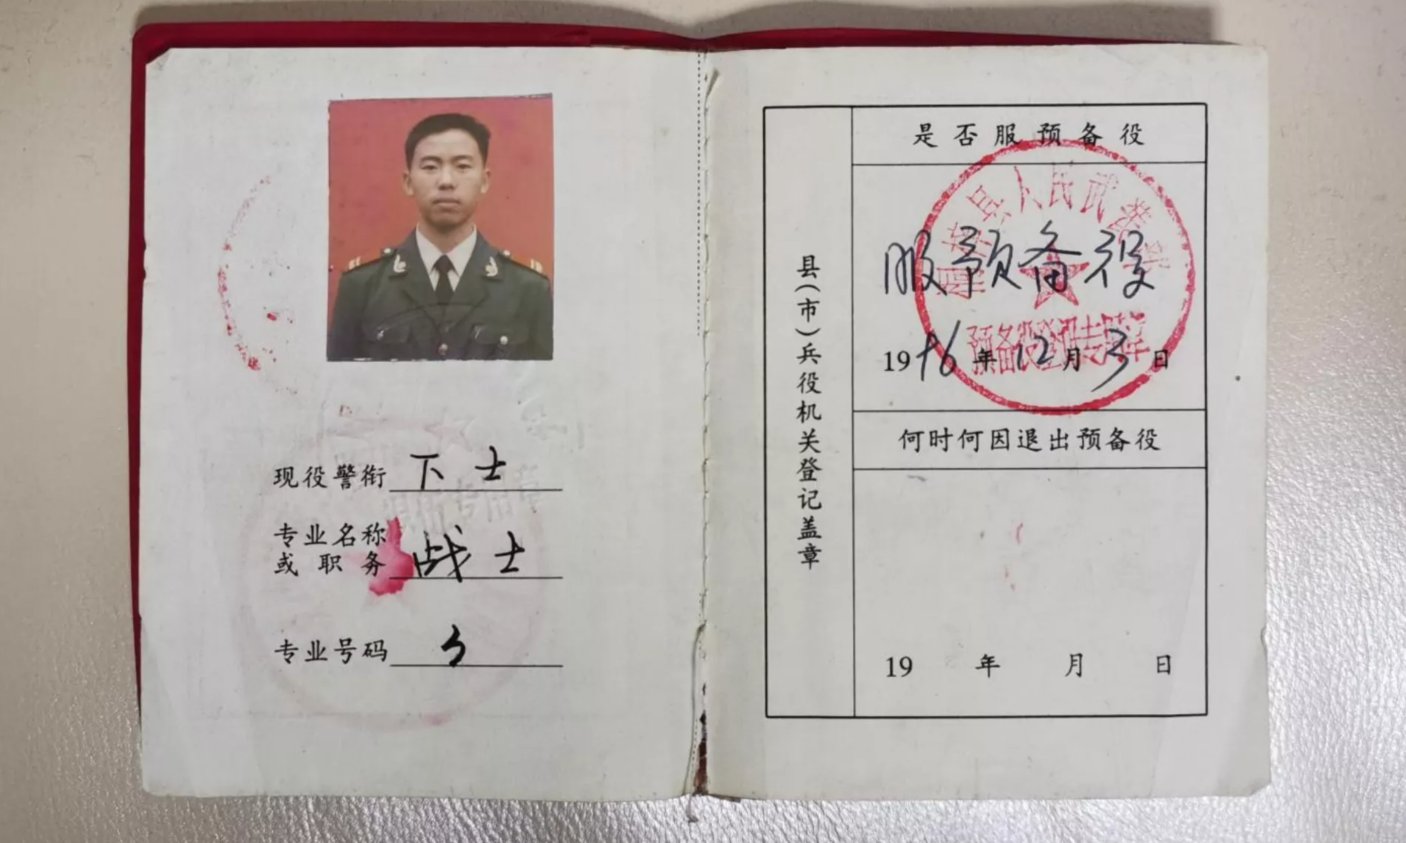 现役警衔 下士
专业名称
或职务 战士
专业号码
县(市)兵役机关登记盖章
是否服预备役
县人民武装部
服预备役
预备役登记专用章
19 96 年 12 月 3 日
何时何因退出预备役
19 年 月 日